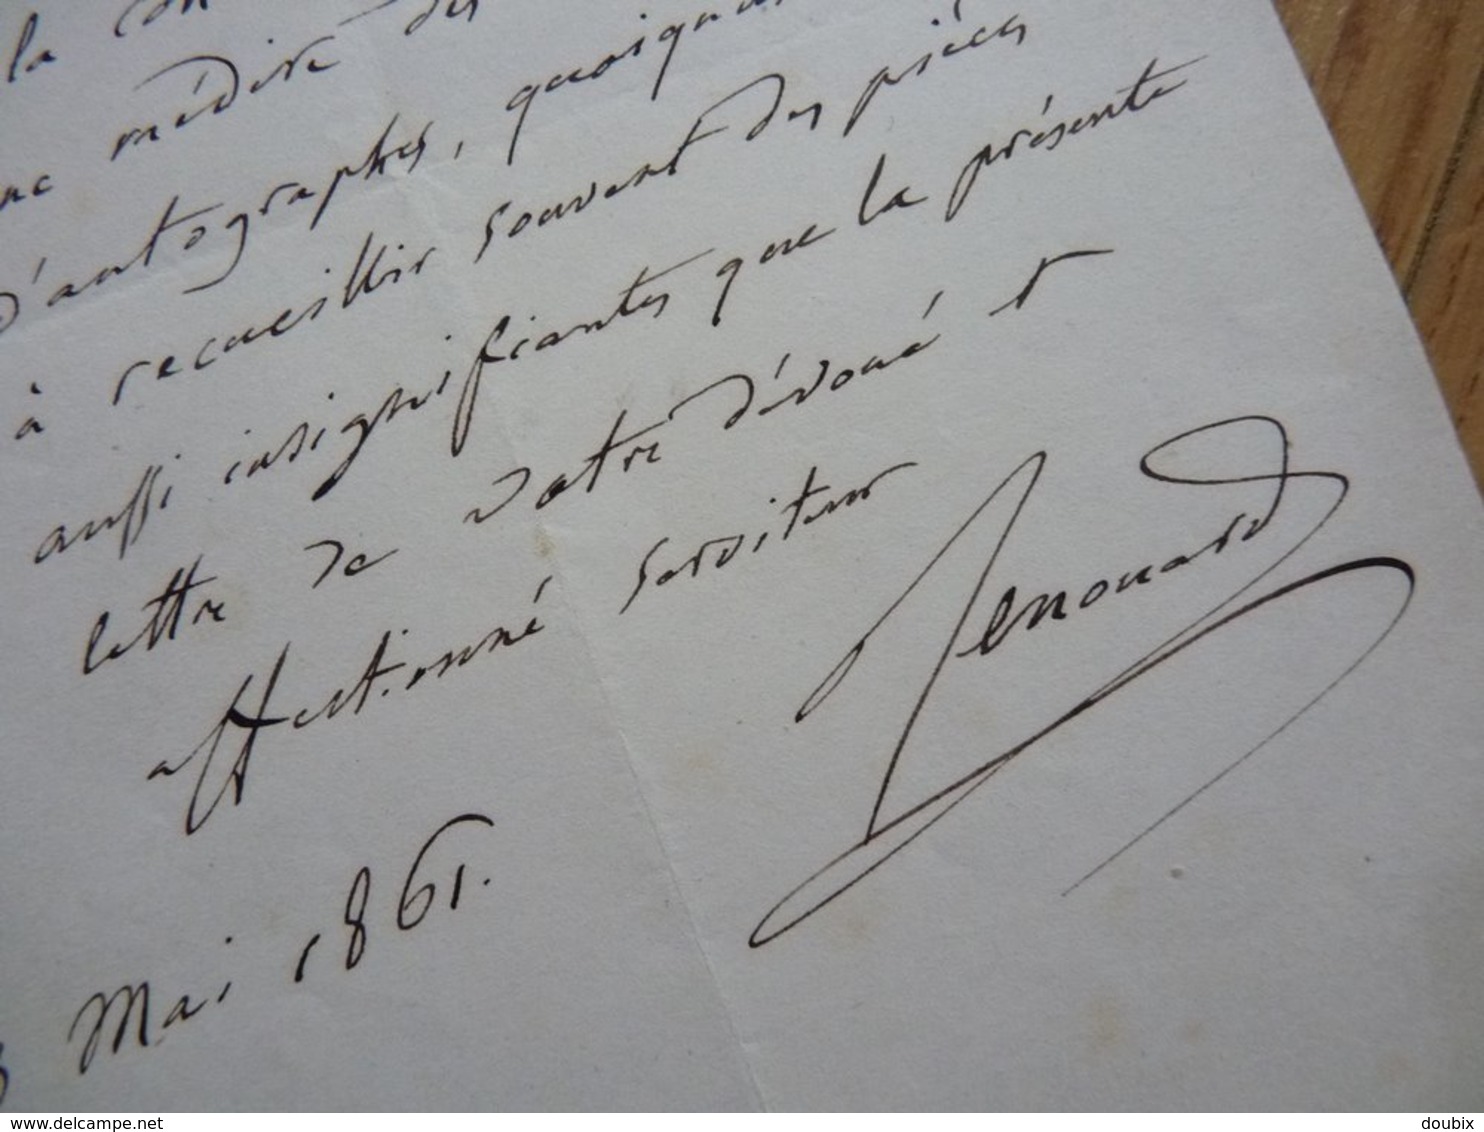 la
médire des
d'autographes, quoique
à recueillir souvent des pièces
aussi insignifiantes que la présente
lettre de votre dévoué et
affectionné serviteur
Renouard
Mai 1861.
www.delcampe.net
doubix